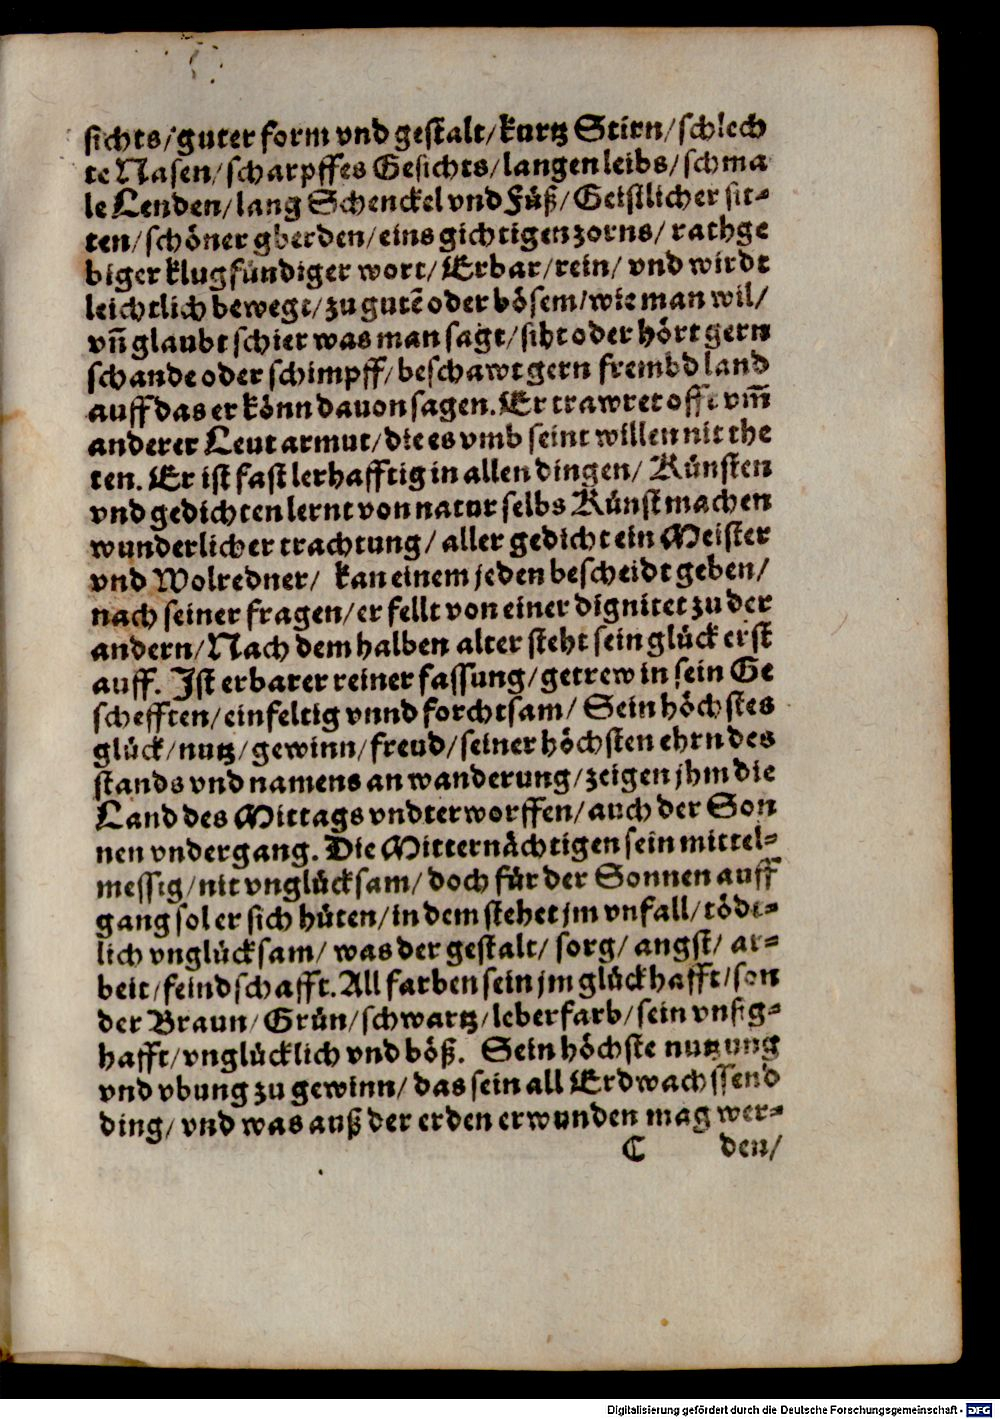 sichts/guter form vnd gestalt/kurtz Stirn/schlech
te Nasen/scharpffes Gesichts/langen leibs/schma
le Lenden/lang Schenckel vnd Füß/Geistlicher sit-
ten/schöner gberden/eins gichtigen zorns/ rathge
biger klugfündiger wort/Erbar/rein/ vnd wirdt
leichtlich bewegt/zu gutẽ oder bösem/wie man wil/
vñ glaubt schier was man sagt/siht oder hört gern
schande oder schimpff/beschawt gern frembd land
auff das er könn dauon sagen. Er trawret offt vm̃
anderer Leut armut/die es vmb seint willen nit the
ten. Er ist fast lerhafftig in allen dingen/ Künsten
vnd gedichten lernt von natur selbs Künst machen
wunderlicher trachtung/aller gedicht ein Meister
vnd Wolredner/ kan einem jeden bescheidt geben/
nach seiner fragen/er fellt von einer dignitet zu der
andern/Nach dem halben alter steht sein glück erst
auff. Ist erbarer reiner fassung/getrew in sein Ge
schefften/einfeltig vnnd forchtsam/ Sein höchstes
glück/nutz/gewinn/freud/seiner höchsten ehrn des
stands vnd namens an wanderung/zeigen jhm die
Land des Mittags vndterworffen/auch der Son
nen vndergang. Die Mitternächtigen sein mittel-
messig/nit vnglücksam/doch für der Sonnen auff
gang sol er sich hüten/in dem stehet jm vnfall/tödt-
lich vnglücksam/ was der gestalt/ sorg/ angst/ ar-
beit/feindschafft. All farben sein jm glückhafft/son
der Braun/Grün/schwartz/leberfarb/sein vnsig-
hafft/vnglücklich vnd böß. Sein höchste nutzung
vnd vbung zu gewinn/das sein all Erdwachssend
ding/ vnd was auß der erden erwunden mag wer-
C den/
Digitalisierung gefördert durch die Deutsche Forschungsgemeinschaft - DFG